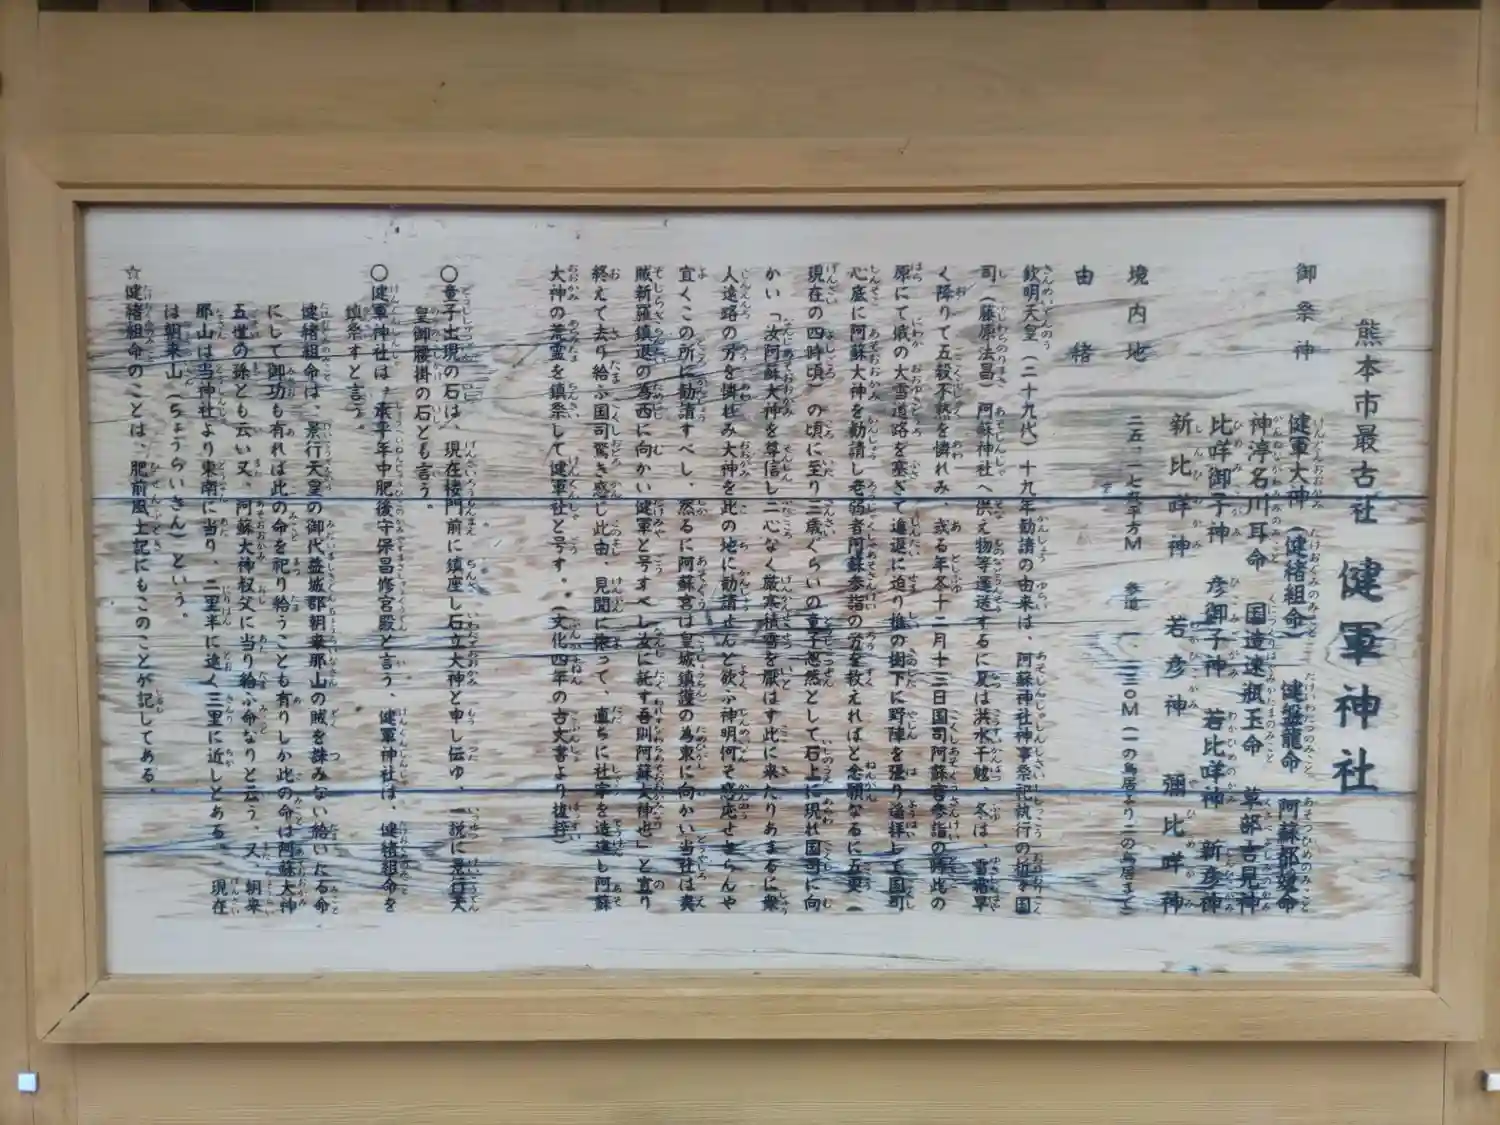 熊本市最古社 健軍神社
御祭神
健軍大神(健緒組命) 健磐龍命 阿蘇都媛命
神渟名川耳命 国造速瓶玉命 草部吉見神
比咩御子神 彦御子神 若比咩神 新彦神
新比咩神 若彦神 彌比咩神
境内地 二五、一七五平方M 参道 一、二三〇M(一の鳥居より二の鳥居まで)
由緒
欽明天皇(二十九代)十九年勧請の由来は、阿蘇神社神事祭祀執行の砌り国
司(藤原法昌)阿蘇神社へ供え物等運送するに夏は洪水干魃、冬は、雪霜早
く降りて五穀不熟を憐れみ、或る年冬十二月十三日国司阿蘇宮参詣の際此の
原にて俄の大雪道路を塞ぎて進退に迫り椎の樹下に野陣を張り遙拝して国司
心底に阿蘇大神を勧請し老弱者阿蘇参詣の労を救えればと念願なるに五更(
現在の四時頃)の頃に至り三歳ぐらいの童子忽然として石上に現れ国司に向
かい「汝阿蘇大神を尊信し二心なく厳寒積雪を厭はす此に来たりあまるに衆
人遠路の労を憐れみ大神を此の地に勧請せんと欲ふ神明何そ感応せさらんや
宜くこの所に勧請すべし、然るに阿蘇宮は皇城鎮護の為東に向かい当社は異
賊新羅鎮退の為西に向かい健軍と号すべし汝に託す吾則阿蘇大神也」と宣り
終えて去り給ふ国司驚き感じ此由、見聞に依って、直ちに社宇を造進し阿蘇
大神の荒霊を鎮祭して健軍社と号す。(文化四年の古文書より抜抄)
〇童子出現の石は、現在楼門前に鎮座し石立大神と申し伝ゆ、一説に景行天
皇御腰掛の石とも言う。
〇健軍神社は、承平年中肥後守保昌修宮殿と言う、健軍神社は、健緒組命を
鎮祭すと言う。
健緒組命は、景行天皇の御代益城郡朝来那山の賊を誅みない給いたる命
にして御功も有れば此の命を祀り給うことも有りしか此の命は阿蘇大神
五世の孫とも云い又、阿蘇大神叔父に当り給ふ命なりと云う、又、朝来
那山は当神社より東南に当り、二里半に遠く三里に近しとある。現在
は朝来山(ちょうらいさん)という。
☆健緒組命のことは、肥前風土記にもこのことが記してある。